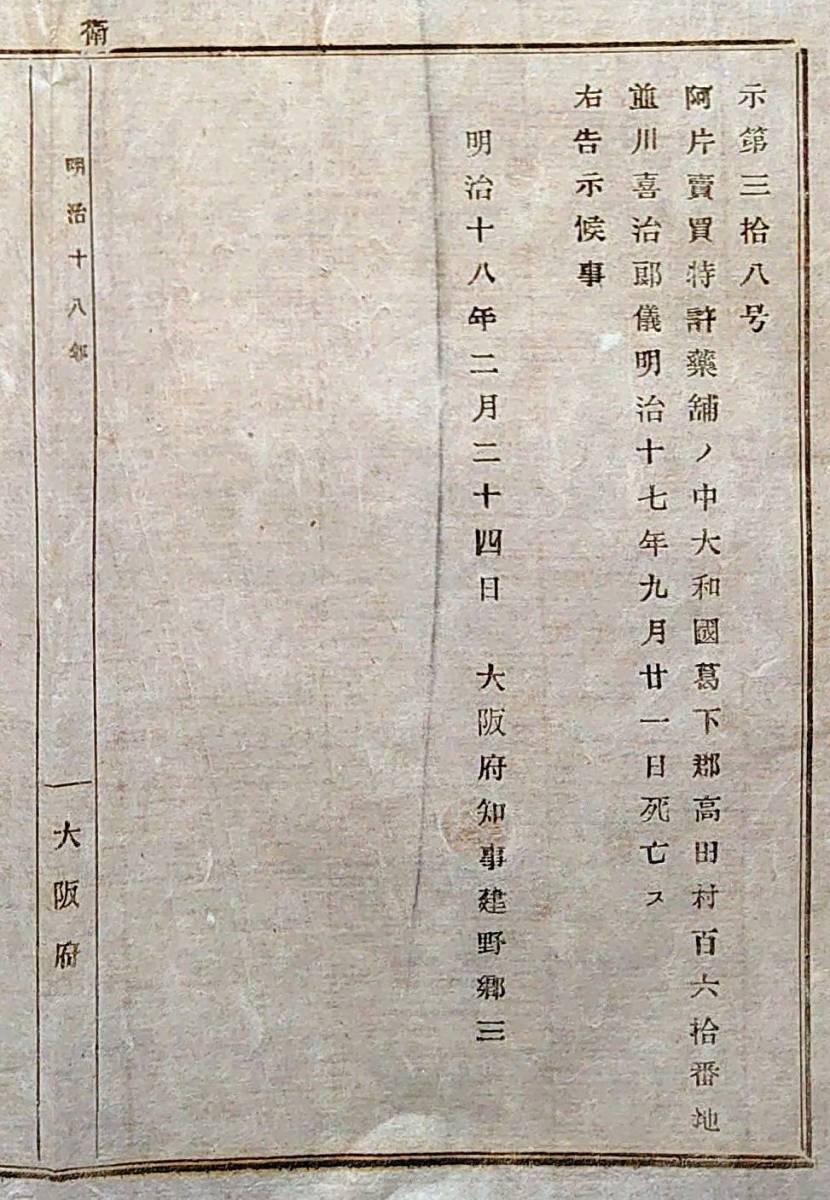 示第三拾八号
阿片賣買特許藥舗ノ中大和國葛下郡高田村百六拾番地
並川喜治郎儀明治十七年九月廿一日死亡ス
右告示候事
明治十八年二月二十四日　大阪府知事建野郷三
衛
明治十八年
大阪府